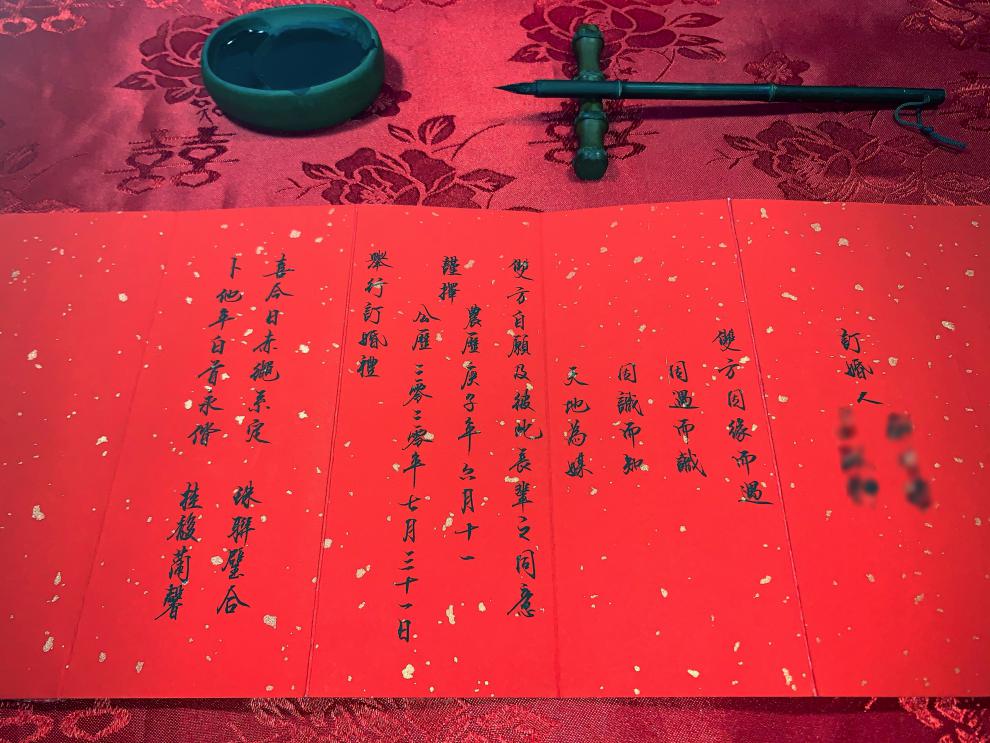 訂婚人
雙方因緣而遇
因遇而識
因誠而知
天地為媒
雙方自願及彼此長輩之同意
謹擇
農曆庚子年六月十一
公曆二零二零年七月三十一日
舉行訂婚禮
喜今日赤繩系定
珠聯璧合
卜他年白首永偕
桂馥蘭馨